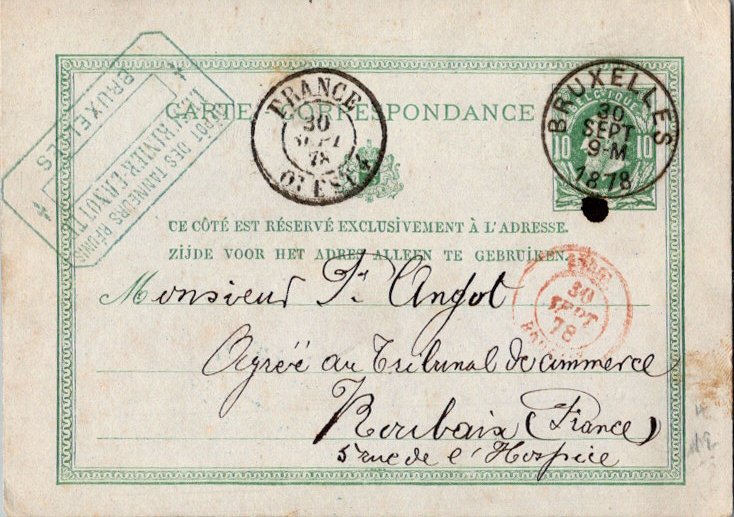 CARTE CORRESPONDANCE
BELGIQUE
10 10
BRUXELLES
30
SEPT
9-M
1878
FRANCE
30
SEPT
78
OUEST 4
DES TANNEURS RÉUNIS
BRUXELLES
CE CÔTÉ EST RÉSERVÉ EXCLUSIVEMENT À L'ADRESSE.
ZIJDE VOOR HET ADRES ALLEEN TE GEBRUIKEN.
30
SEPT
78
Monsieur Angot
Agréé au Tribunal de Commerce
Roubaix (France)
5 rue de l'Hospice